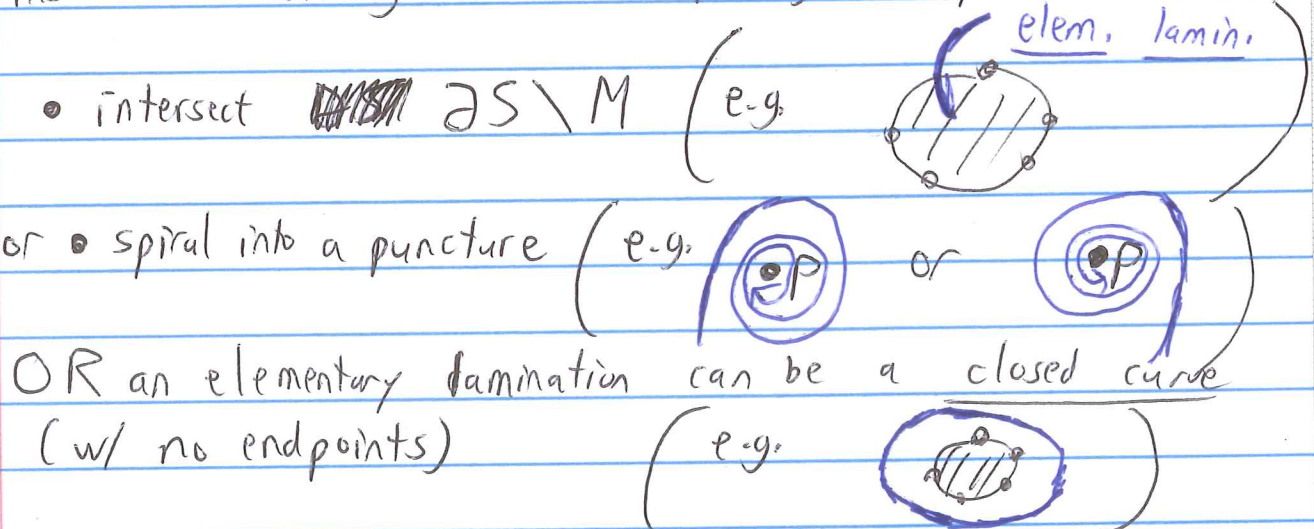 elem. lamin.
• intersect ∂S \ M (e.g. )
or • spiral into a puncture (e.g. p or p)
OR an elementary lamination can be a closed curve
(w/ no endpoints) (e.g. )